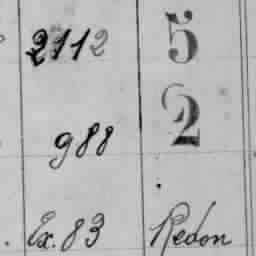 2112 5
988 2
Ex. 83 Redon